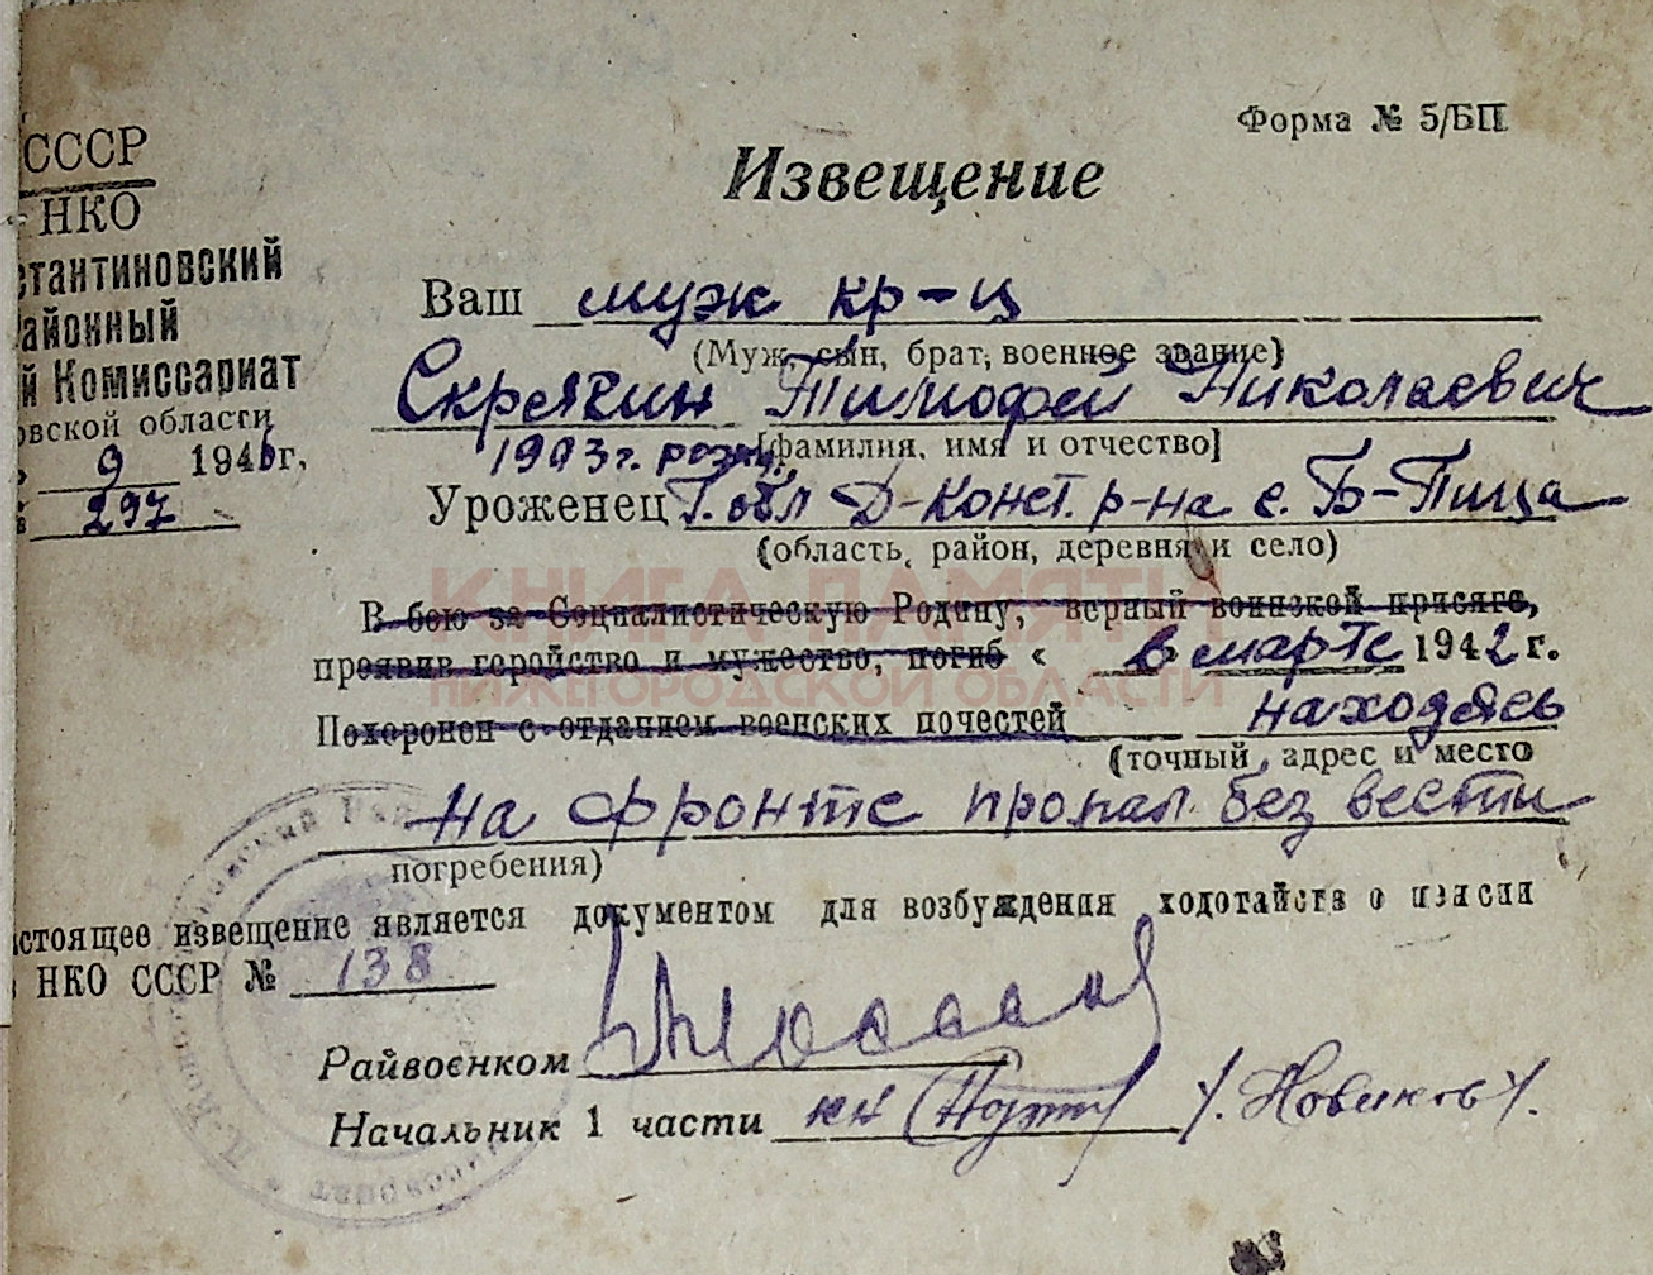 Форма № 5/БП
СССР
НКО
стантиновский
айонный
й Комиссариат
овской области
9 1946г.
297
Извещение
Ваш муж кр-ц
(Муж, сын, брат, военное звание)
Скрябин Тимофей Николаевич
1903г. рожд. [фамилия, имя и отчество]
Уроженец Г. обл Д-Конст. р-на с. Б-Пица
(область, район, деревня и село)
КНИГА ПАМЯТИ
НИЖЕГОРОДСКОЙ ОБЛАСТИ
В бою за Социалистическую Родину, верный воинской присяге,
проявив геройство и мужество, погиб « в марте 1942 г.
Похоронен с отданием военских почестей находясь
(точный, адрес и место
на фронте пропал без вести
погребения)
стоящее извещение является документом для возбуждения ходотайств о пенсии
НКО СССР № 138
Райвоенком
Начальник 1 части /. Новиков /.